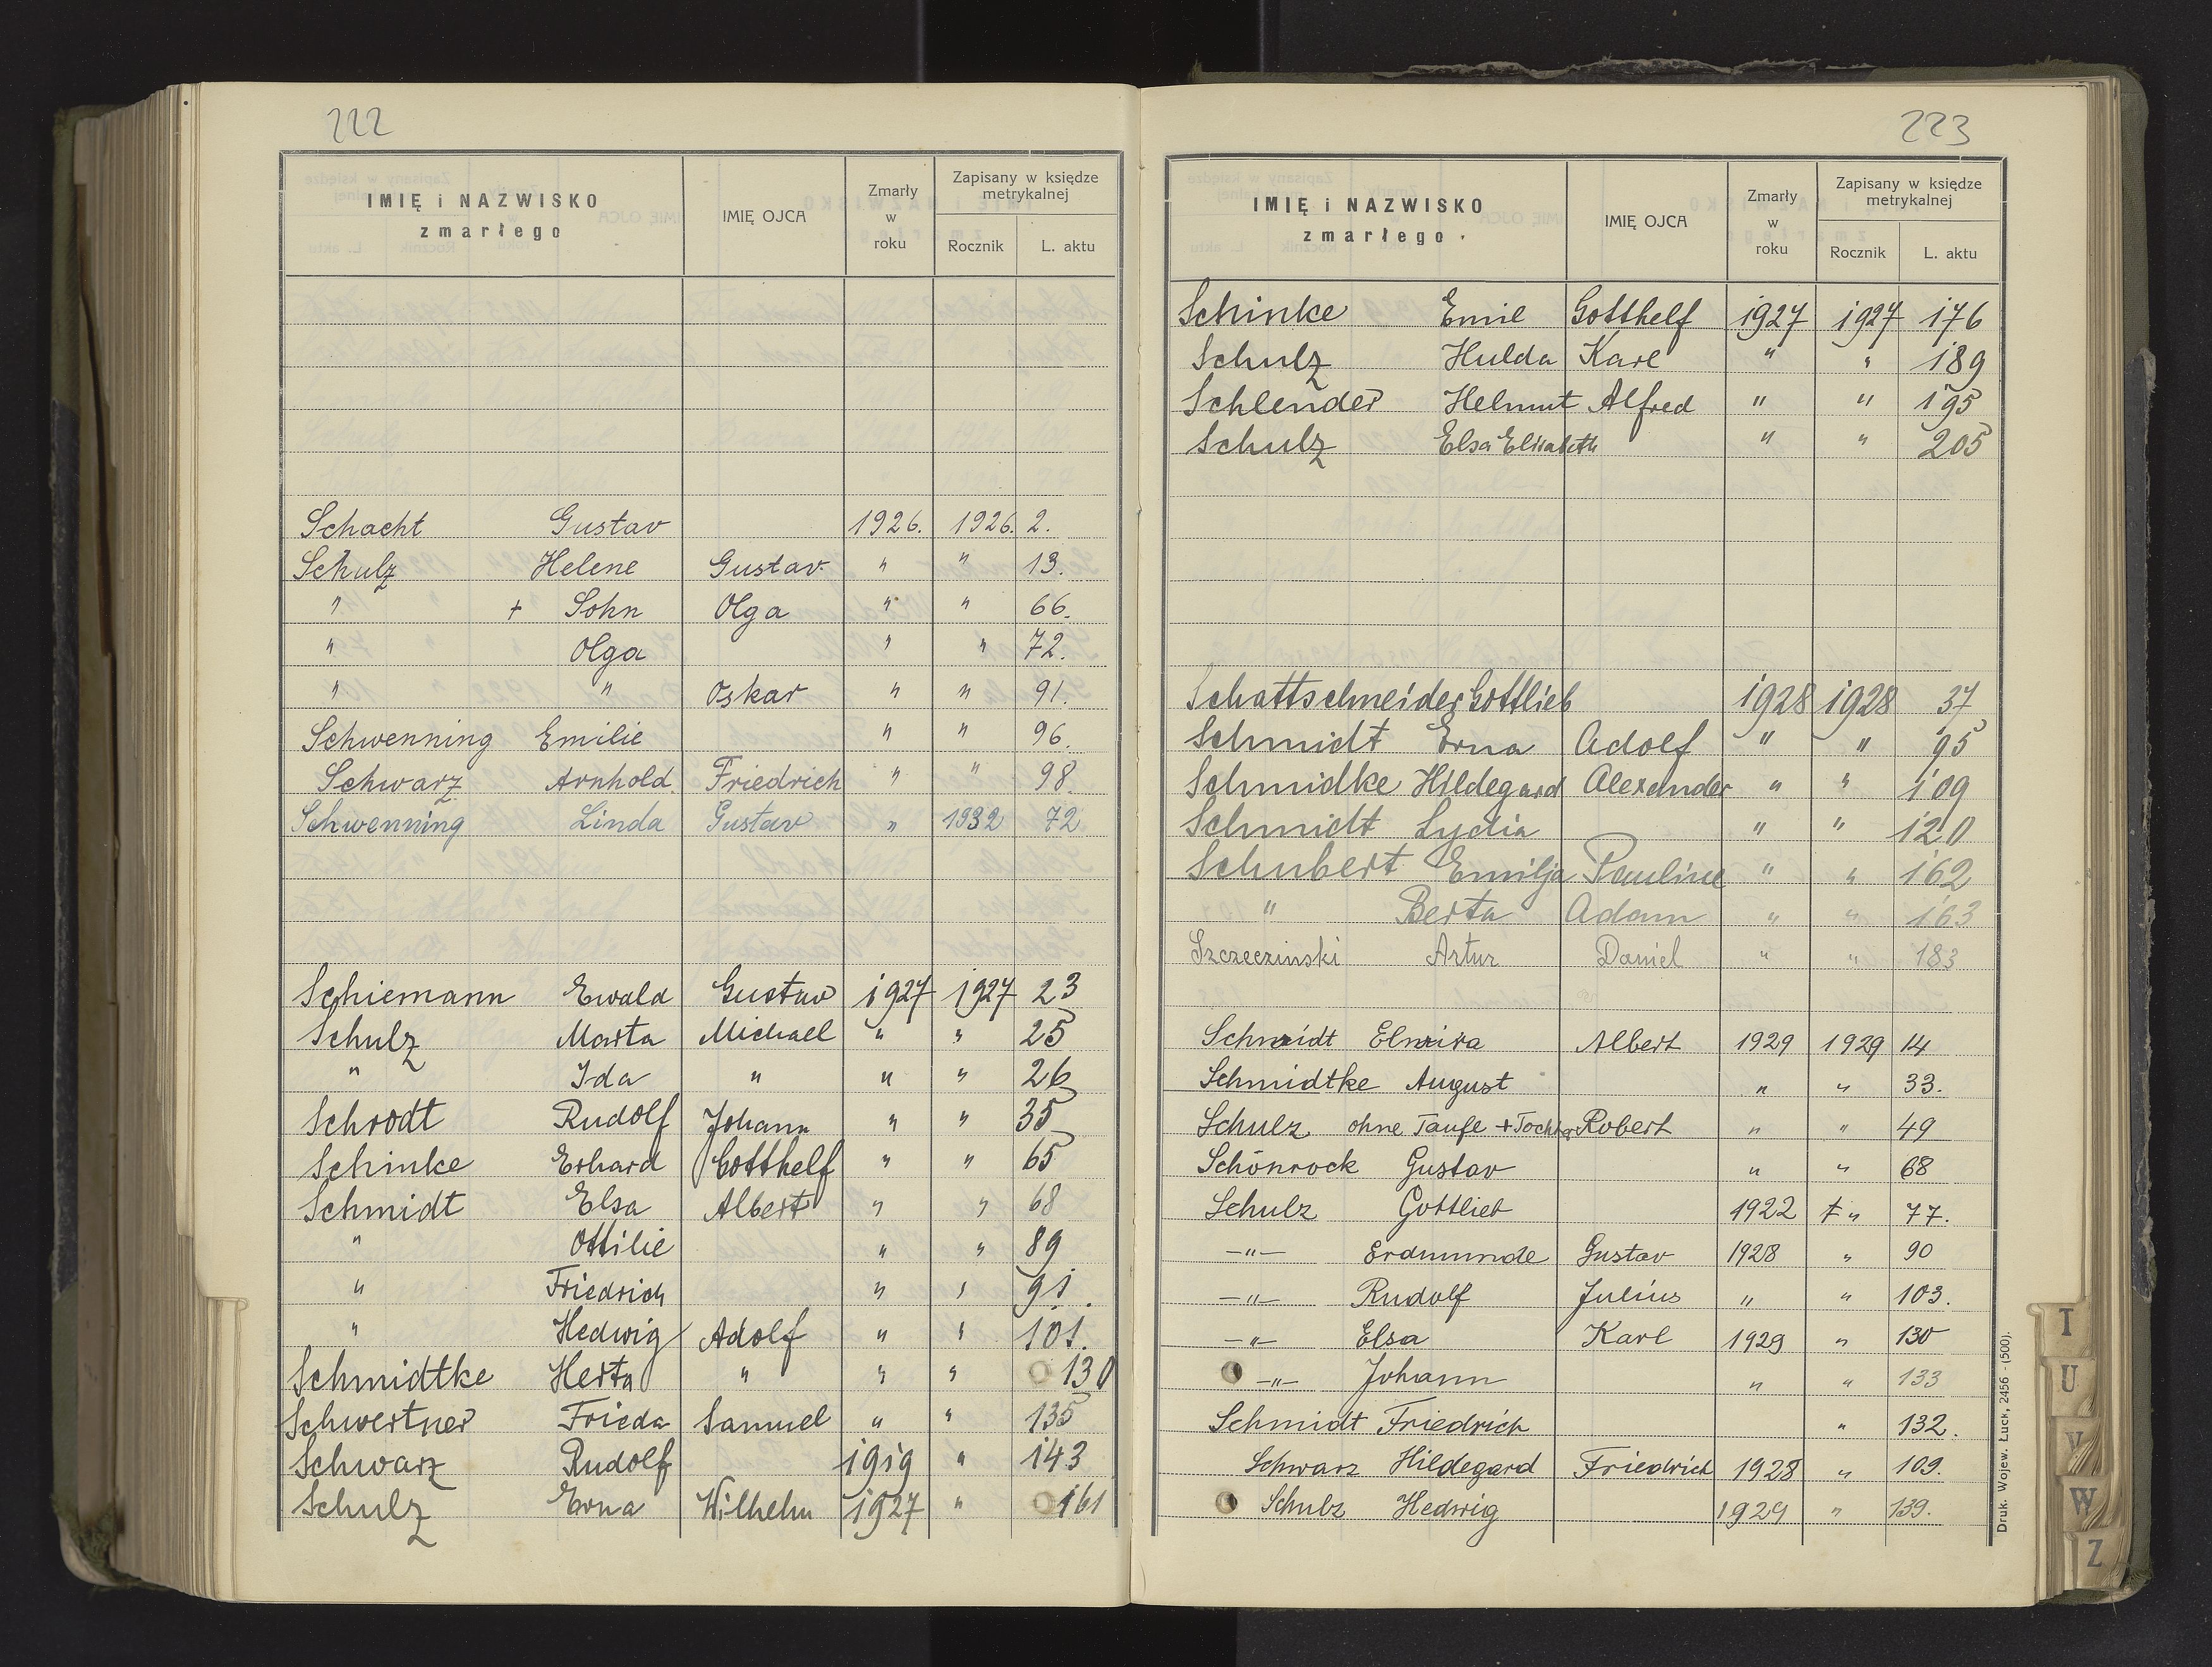 222
IMIĘ i NAZWISKO zmarłego IMIĘ OJCA Zmarły w roku Zapisany w księdze metrykalnej Rocznik L. aktu
Schacht Gustav 1926. 1926. 2.
Schulz Helene Gustav " " 13.
" + Sohn Olga " " 66.
" Olga " " 72.
" " Oskar " " 91.
Schwenning Emilie " " 96.
Schwarz Arnhold. Friedrich " " 98.
Schwenning Linda Gustav " 1932 72
Schiemann Ewald Gustav 1927 1927 23
Schulz Marta Michael " " 25
" Ida " " " 26
Schrodt Rudolf Johann " " 35
Schinke Erhard Gotthelf " " 65
Schmidt Elsa Albert " " 68
" Ottilie " " 89
" Friedrich " " 91.
" Hedwig Adolf " " 101.
Schmidtke Herta " " " 130
Schwertner Frieda Samuel " " 135
Schwarz Rudolf 1919 " 143
Schulz Erna Wilhelm 1927 " 161
223
IMIĘ i NAZWISKO zmarłego IMIĘ OJCA Zmarły w roku Zapisany w księdze metrykalnej Rocznik L. aktu
Schinke Emil Gotthelf 1927 1927 176
Schulz Hulda Karl " " 189
Schlender Helmut Alfred " " 195
Schulz Elsa Elisabeth " " 205
Schattschneider Gottlieb 1928 1928 37
Schmidt Erna Adolf " " 95
Schmidke Hildegard Alexander " " 109
Schmidt Lydia " " 120
Schubert Emilja Pauline " " 162
" Berta Adam " " 163
Szczeczinski Artur Daniel " " 183
Schmidt Elmira Albert 1929 1929 14
Schmidtke August " " 33.
Schulz ohne Taufe + Tochter Robert " " 49
Schönrock Gustav " " 68
Schulz Gottlieb 1922 " 77.
-"- Erdmunde Gustav 1928 " 90
-"- Rudolf Julius " " 103.
-"- Elsa Karl 1929 " 130
-"- Johann " " 133
Schmidt Friedrich " 132.
Schwarz Hildegard Friedrich 1928 " 109.
Schulz Hedwig 1929 " 139.
Druk. Wojew. Łuck, 2456 - (500).
T
U
V
W
Z